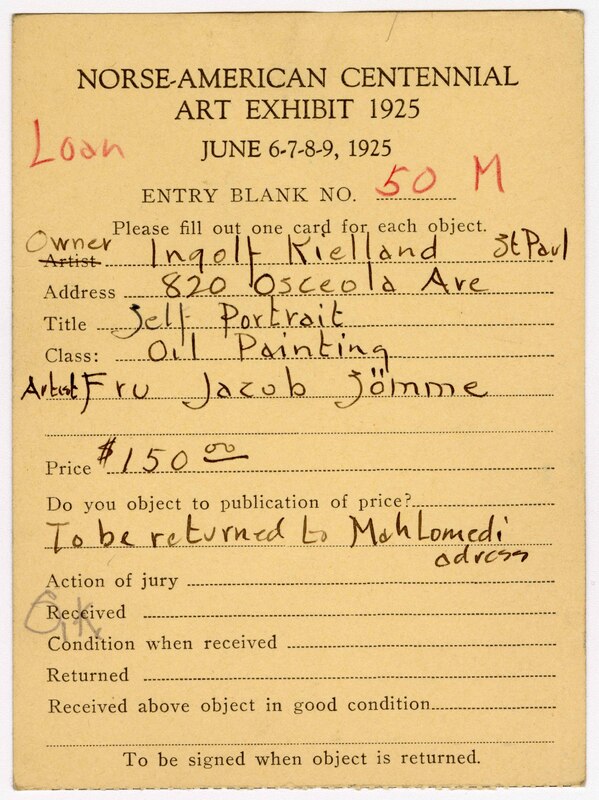 NORSE-AMERICAN CENTENNIAL
ART EXHIBIT 1925
Loan
JUNE 6-7-8-9, 1925
ENTRY BLANK NO. 50 M
Please fill out one card for each object.
Owner
Artist Ingolf Kielland St Paul
Address 820 Osceola Ave
Title Self Portrait
Class: Oil Painting
Artist Fru Jacob Sömme
Price $150 00
Do you object to publication of price?
To be returned to Mahtomedi
adress
Action of jury
Received
Condition when received
Returned
Received above object in good condition
To be signed when object is returned.